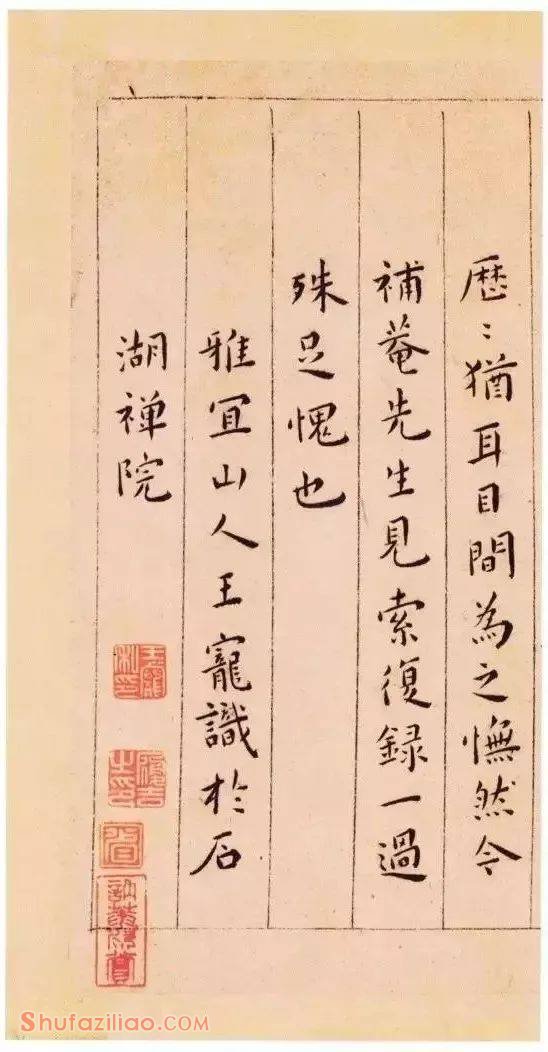 歷〻猶耳目間為之憮然今
補菴先生見索復録一過
殊足愧也
雅宜山人王寵識於石
湖禅院
王寵私印
履吉之印
Shufaziliao.COM